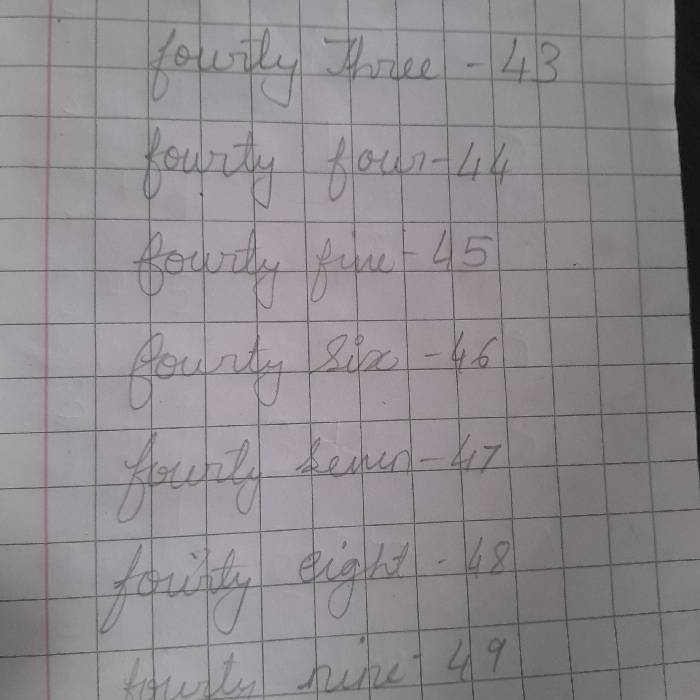 fourty Three - 43
fourty four - 44
fourty five - 45
fourty six - 46
fourty seven - 47
fourty eight - 48
fourty nine - 49